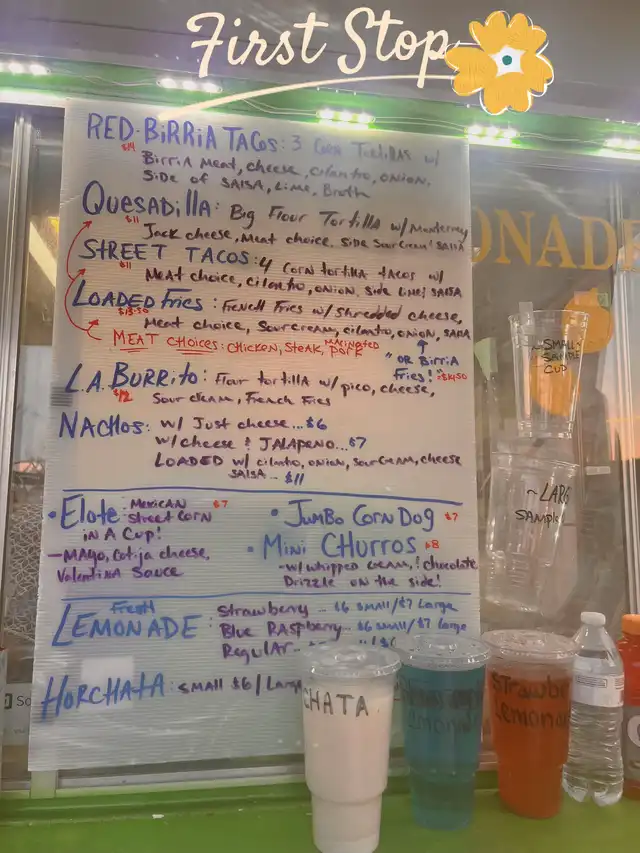 First Stop
RED-BiRRiA TACOS: 3 CORN TORTiLLAS w/
$14
BiRRiA MEAT, CHEESE, CiLANTRO, ONiON,
SiDE OF SALSA, LiME, BROTH
QUESADillA: Big FlOUR TORTillA w/ MONTEREY
$11
JACK CHEESE, MEAT CHOiCE, SiDE SOUR CREAM & SALSA
STREET TACOS: 4 CORN TORTillA TACOS w/
$11
MEAT CHOiCE, CiLANTRO, ONiON, SiDE LiME & SALSA
LOADED FRiES: FRENCH FRiES w/ SHREDDED CHEESE,
$13.50
MEAT CHOiCE, SOUR CREAM, CiLANTRO, ONiON, SALSA
MEAT CHOiCES: CHiCKEN, STEAK, MARiNATED PORK
"OR BiRRiA
FRiES!" $14.50
L.A. BURRiTO: FlOUR TORTillA w/ PiCO, CHEESE,
$12
SOUR CREAM, FRENCH FRiES
NACHOS: w/ JUST CHEESE...$6
w/ CHEESE & JALAPENO...$7
LOADED w/ CiLANTRO, ONiON, SOUR CREAM, CHEESE
SALSA... $11
• Elote: MEXiCAN $7
STREET CORN
iN A CUP!
- MAYO, COTiJA CHEESE,
VALENTiNA SAUCE
• JUMBO CORN DOG $7
• MiNi CHURROS $8
- w/ WHiPPED CREAM, & CHOCOLATE
DRiZZLE ON THE SiDE!
FRESH
LEMONADE
STRAWBERRY... $6 SMALL/$7 LARGE
BLUE RASPBERRY... $6 SMALL/$7 LARGE
REGULAR...
HORCHATA: SMALL $6/
ONADE
~SMALL~
SAMPLE
CUP
SAMPLE
CHATA
Lemonade